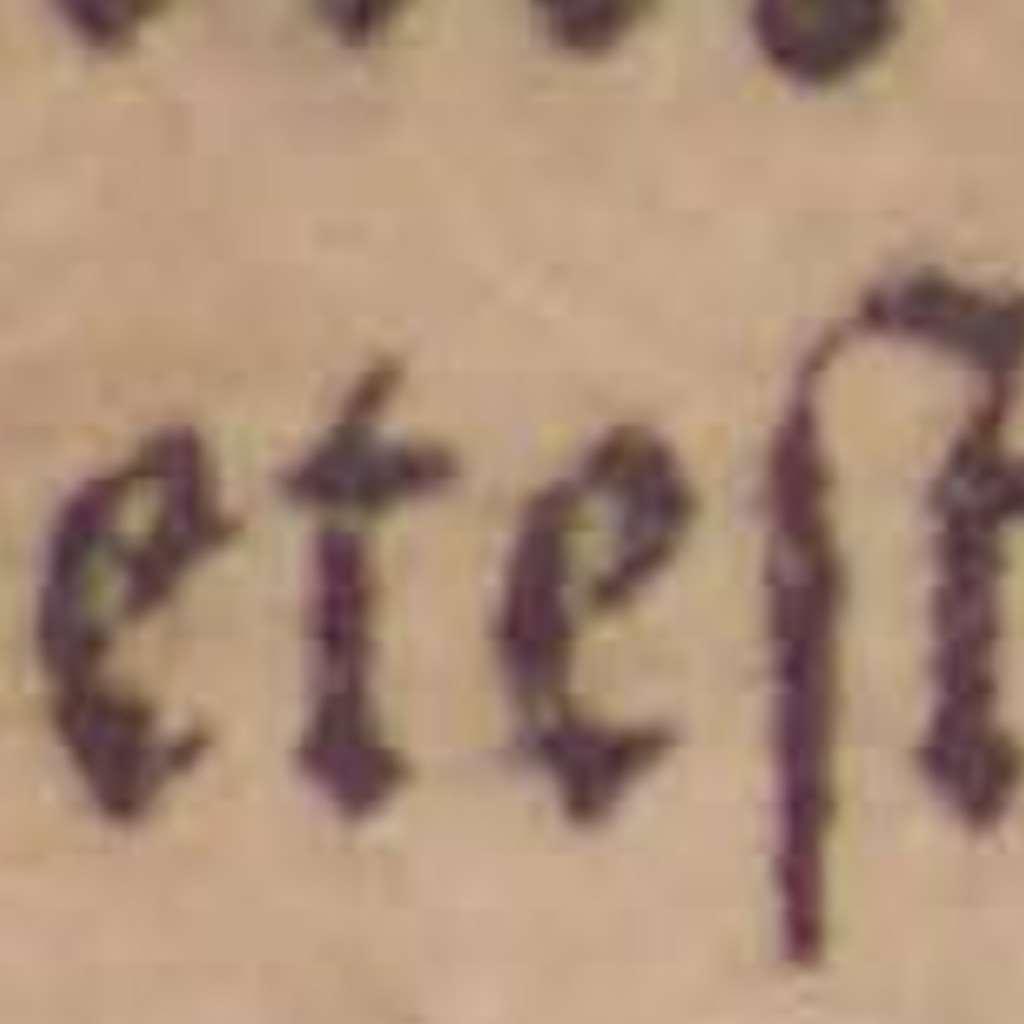 eteſt